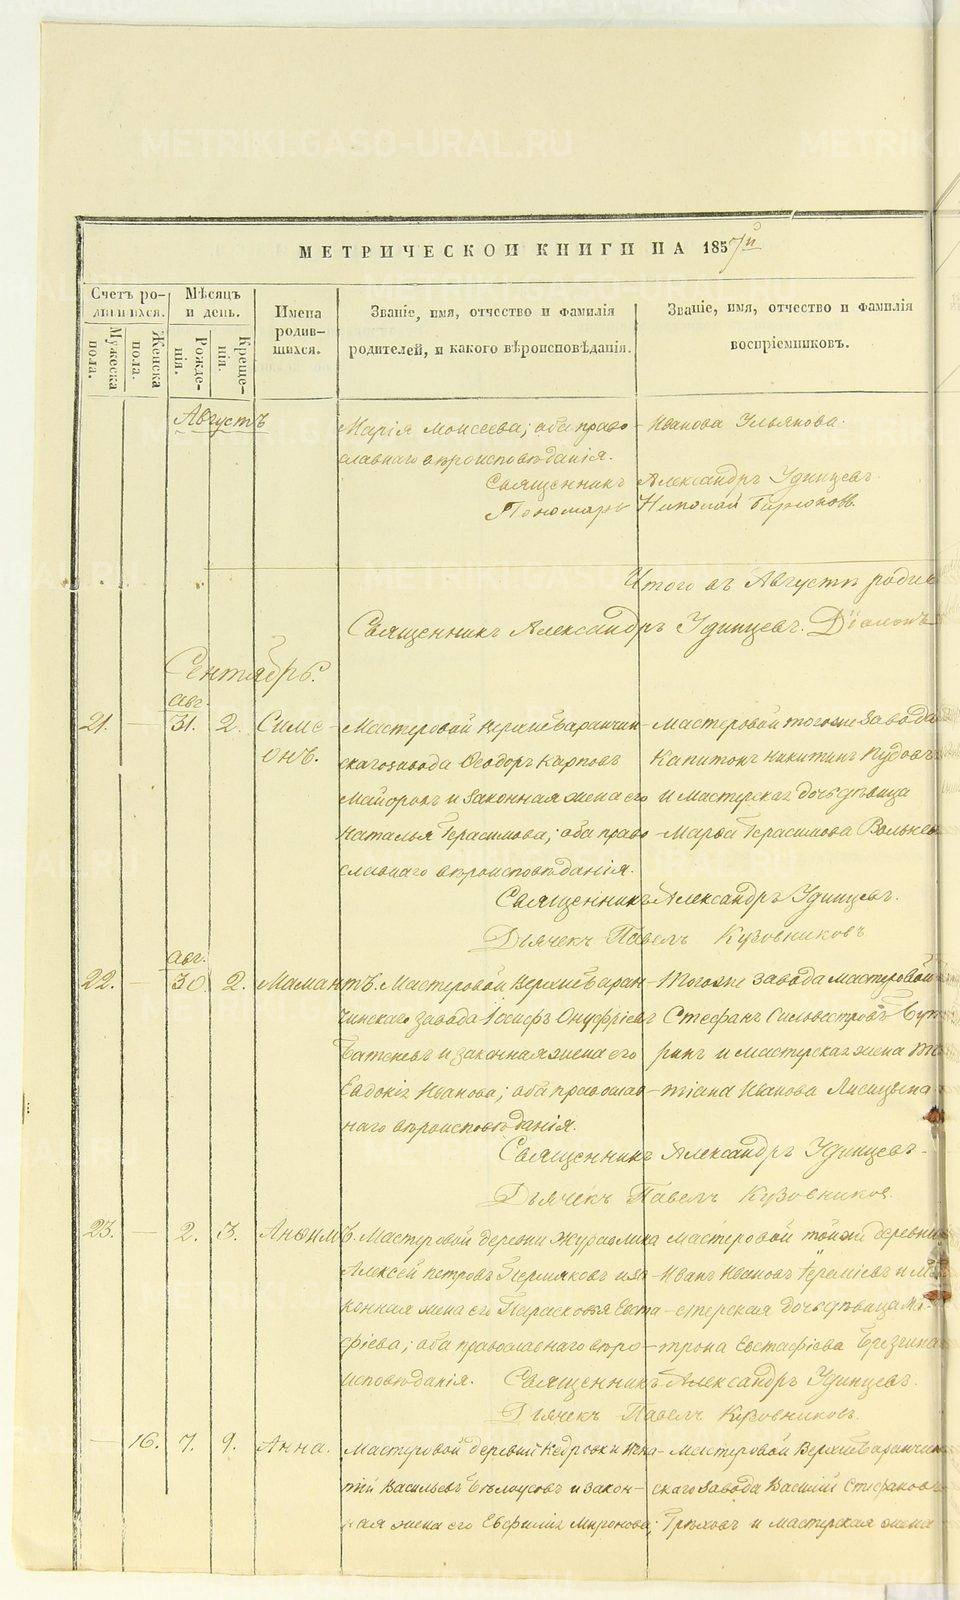 METRIKI.GASO-URAL.RU
МЕТРИЧЕСКОЙ КНИГИ НА 1857й
Счетъ родившихся.
Мужеска пола.
Женска пола.
Мѣсяцъ и день.
Рожденія.
Крещенія.
Имена родившихся.
Званіе, имя, отчество и фамилія
родителей, и какого вѣроисповѣданія.
Званіе, имя, отчество и фамилія
воспріемниковъ.
Августъ
Марія Моисеева; оба право- Иванова Ульянова.
славнаго вѣроисповѣданія.
Священникъ Александръ Удинцевъ
Пономарь Николай
Итого въ Августѣ родив
Священникъ Александръ Удинцевъ.
Сентябрь.
авг.
21. — 31. 2. Симе- Мастеровой Верхнебаранчин- Мастеровой тогоже завода
онъ. скагозавода Ѳеодоръ Карповъ Капитонъ Никитинъ Пудовъ
Майоровъ и законная жена его и Мастерская дочь дѣвица
Наталья Герасимова; оба право- Марѳа Герасимова
славнаго вѣроисповѣданія.
Священникъ Александръ Удинцевъ.
Дьячекъ Павелъ Кузовниковъ
авг.
22. — 30 2. Мамантъ. Мастеровой Верхнебаран- Тогоже завода мастеровой
чинскаго завода Іосифъ Онуфріевъ Стефанъ Сильвестровъ
и законная жена его и мастерская жена
Евдокія Иванова; оба православ- тіана Иванова Лисицына
наго вѣроисповѣданія.
Священникъ Александръ Удинцевъ.
Дьячекъ Павелъ Кузовниковъ.
23. — 2. 3. Анѳимъ. Мастеровой деревни Журавлика мастеровой тойже деревни
Алексѣй Петровъ Пермяковъ и за- Иванъ Ивановъ и
конная жена его Парасковья Евста- стерская дочь дѣвица
фіева; оба православнаго вѣро- трона Евстафіева
исповѣданія. Священникъ Александръ Удинцевъ.
Дьячекъ Павелъ Кузовниковъ.
— 16. 7. 9. Анна. Мастеровой деревни Мастеровой Верхнебаранчин
тій Васильевъ Бѣлоусовъ и закон- скаго завода Василій Стефановъ
ная жена его Евфимія Миронова; Грѣховъ и мастерская жена